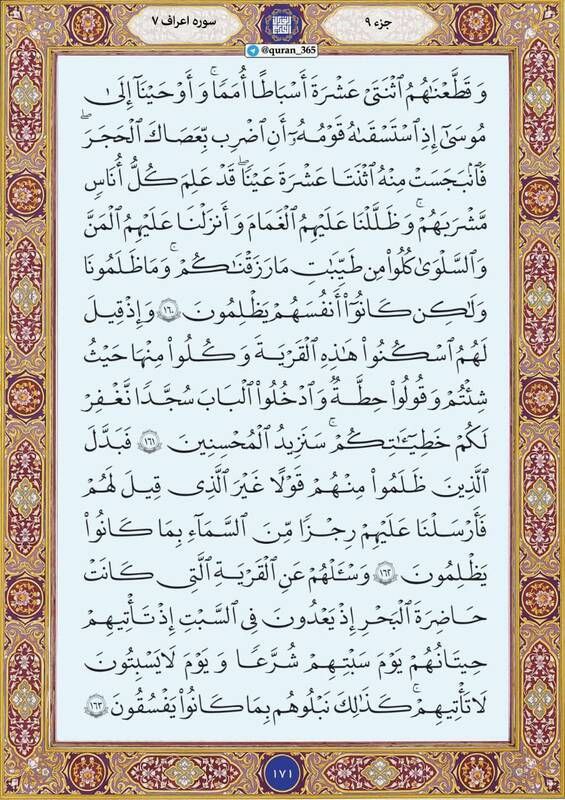 جزء ۹
سوره اعراف ۷
@quran_365
وَقَطَّعْنَاهُمُ ٱثْنَتَىْ عَشْرَةَ أَسْبَاطًا أُمَمًا ۚ وَأَوْحَيْنَآ إِلَىٰ
مُوسَىٰٓ إِذِ ٱسْتَسْقَىٰهُ قَوْمُهُۥٓ أَنِ ٱضْرِب بِّعَصَاكَ ٱلْحَجَرَ ۖ
فَٱنۢبَجَسَتْ مِنْهُ ٱثْنَتَا عَشْرَةَ عَيْنًا ۖ قَدْ عَلِمَ كُلُّ أُنَاسٍ
مَّشْرَبَهُمْ ۚ وَظَلَّلْنَا عَلَيْهِمُ ٱلْغَمَامَ وَأَنزَلْنَا عَلَيْهِمُ ٱلْمَنَّ
وَٱلسَّلْوَىٰ كُلُوا۟ مِن طَيِّبَاتِ مَا رَزَقْنَاكُمْ ۚ وَمَا ظَلَمُونَا
وَلَٰكِن كَانُوٓا۟ أَنفُسَهُمْ يَظْلِمُونَ ۱۶۰ وَإِذْ قِيلَ
لَهُمُ ٱسْكُنُوا۟ هَٰذِهِ ٱلْقَرْيَةَ وَكُلُوا۟ مِنْهَا حَيْثُ
شِئْتُمْ وَقُولُوا۟ حِطَّةٌ وَٱدْخُلُوا۟ ٱلْبَابَ سُجَّدًا نَّغْفِرْ
لَكُمْ خَطِيٓـَٔاتِكُمْ ۚ سَنَزِيدُ ٱلْمُحْسِنِينَ ۱۶۱ فَبَدَّلَ
ٱلَّذِينَ ظَلَمُوا۟ مِنْهُمْ قَوْلًا غَيْرَ ٱلَّذِى قِيلَ لَهُمْ
فَأَرْسَلْنَا عَلَيْهِمْ رِجْزًا مِّنَ ٱلسَّمَآءِ بِمَا كَانُوا۟
يَظْلِمُونَ ۱۶۲ وَسْـَٔلْهُمْ عَنِ ٱلْقَرْيَةِ ٱلَّتِى كَانَتْ
حَاضِرَةَ ٱلْبَحْرِ إِذْ يَعْدُونَ فِى ٱلسَّبْتِ إِذْ تَأْتِيهِمْ
حِيتَانُهُمْ يَوْمَ سَبْتِهِمْ شُرَّعًا وَيَوْمَ لَا يَسْبِتُونَ
لَا تَأْتِيهِمْ ۚ كَذَٰلِكَ نَبْلُوهُم بِمَا كَانُوا۟ يَفْسُقُونَ ۱۶۳
۱۷۱